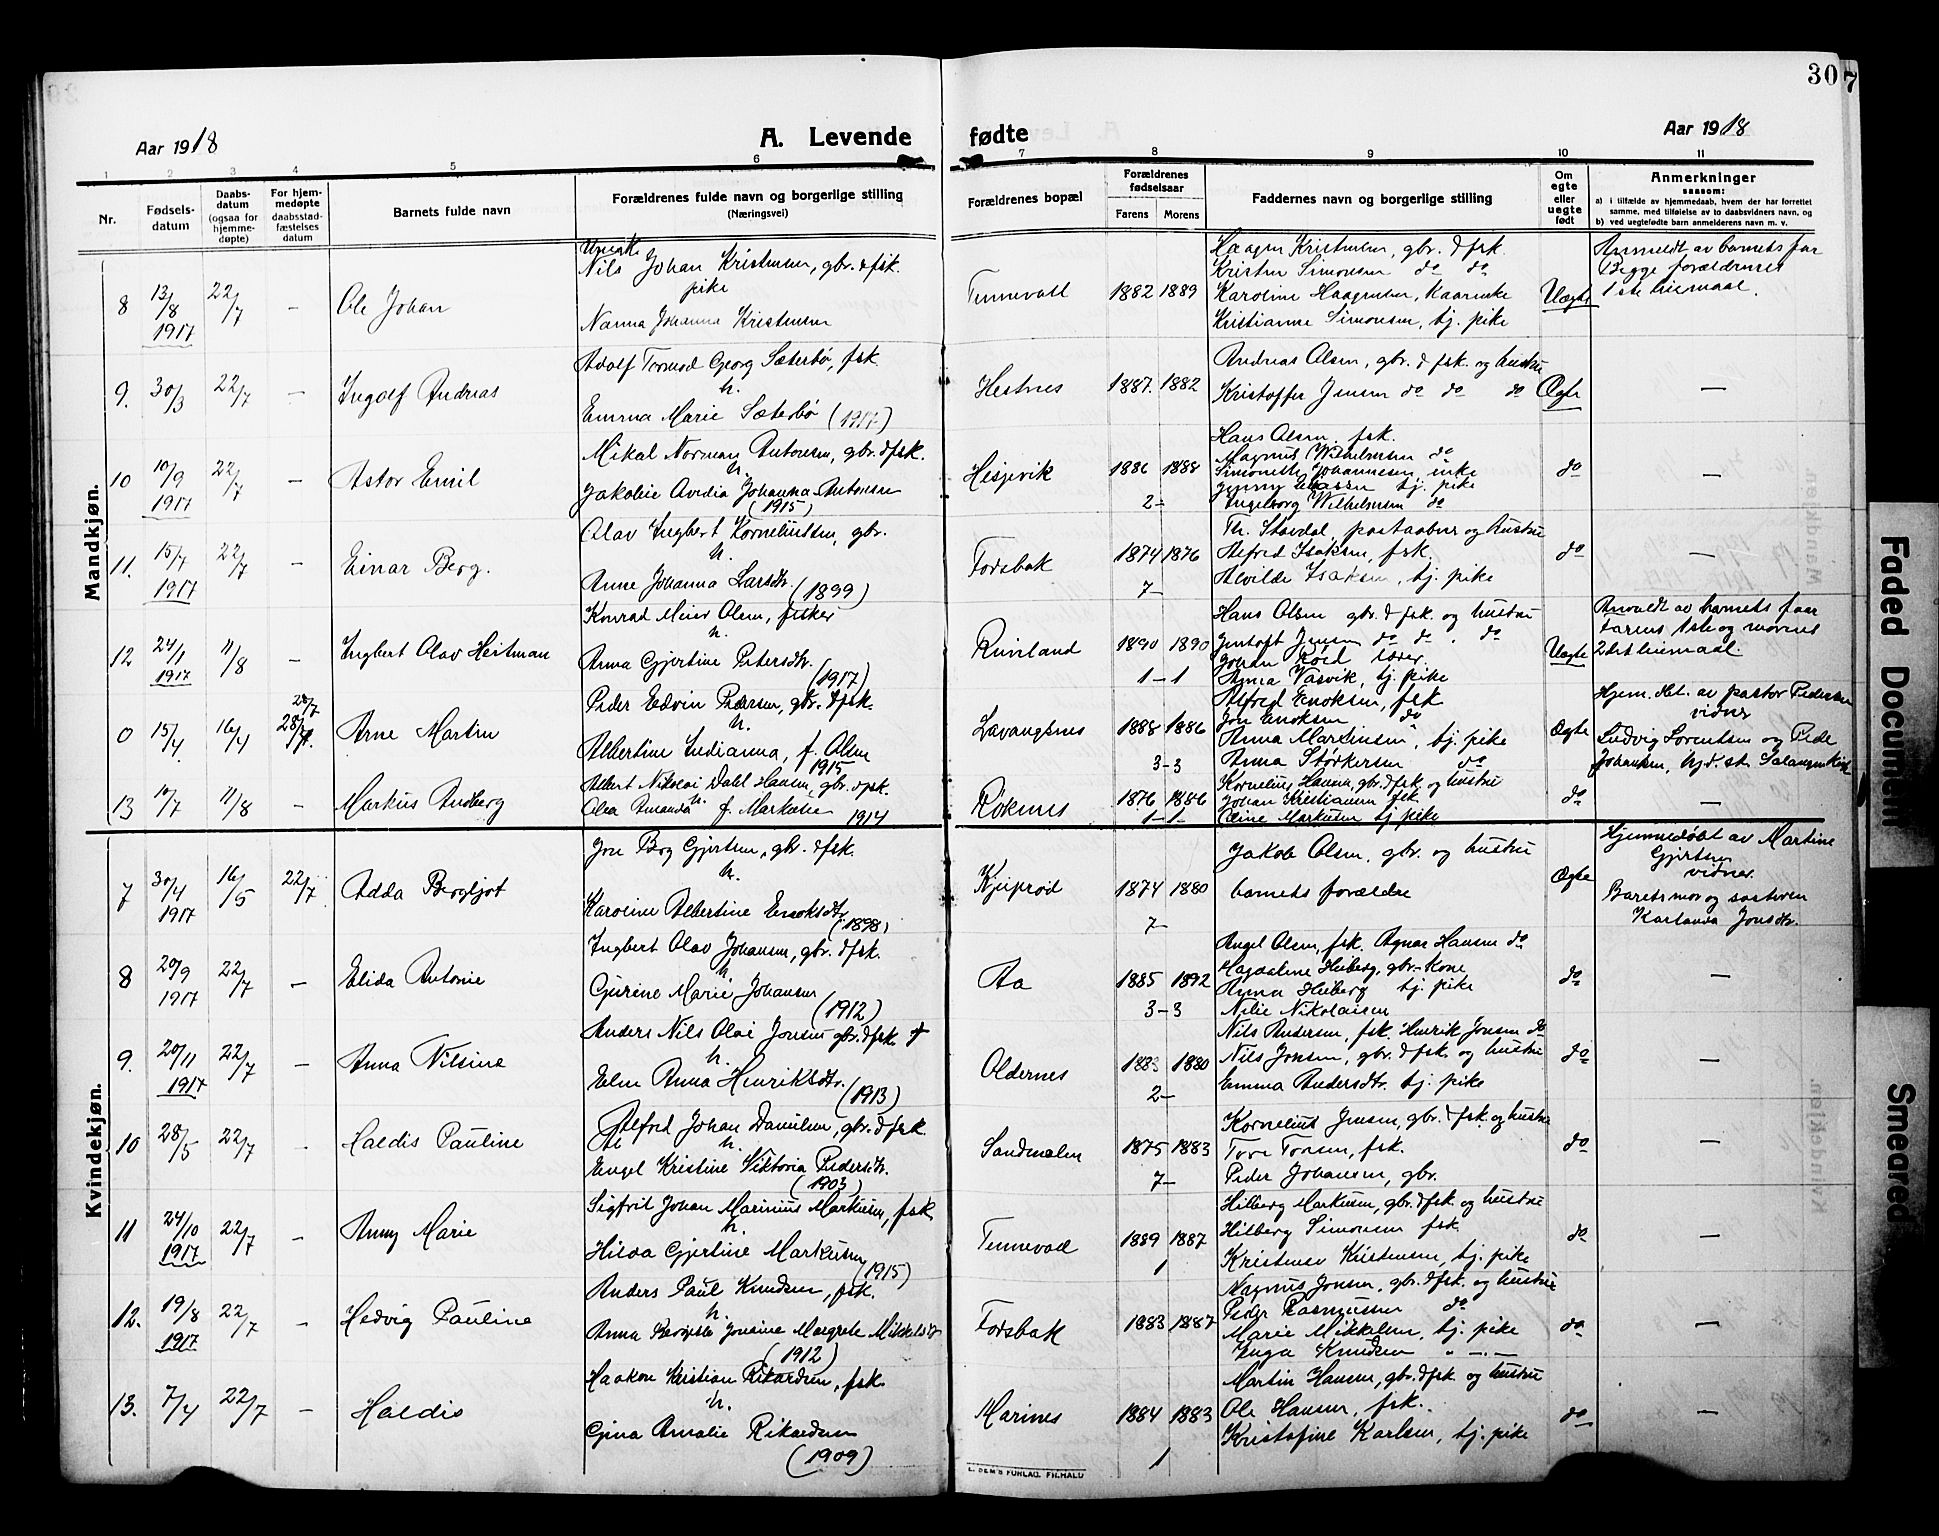 307
Aar 1918
A. Levende
fødte
Aar 1918
1 2 3 4 5 6 7 8 9 10 11
Nr.
Fødsels-
datum
Daabs-
datum
(ogsaa for
hjemme-
døpte)
For hjem-
medøpte
daabsstad-
fæstelses
datum
Barnets fulde navn
Forældrenes fulde navn og borgerlige stilling
(Næringsvei)
Forældrenes bopæl
Forældrenes
fødselsaar
Farens Morens
Faddernes navn og borgerlige stilling
Om
egte
eller
uegte
født
Anmerkninger
saasom:
a) i tilfælde av hjemmedaab, hvem der har forrettet
samme, med tilføielse av to daabsvidners navn, og
b) ved uegtefødte barn anmelderens navn m. v.
Mandkjøn.
8 13/8 1917 22/7 – Ole Johan
Ungk.
Nils Johan Kristensen, gbr. & fsk.
pike
Nanna Johanna Kristensen
Tennevatl 1882 1889
Haagen Kristensen, gbr. & fsk
Kristen Simonsen do do
Karoline Haagensen,
Kristianne Simonsen, tj. pike
Uegte
Anmeldt av barnets far
Begge forældrenes
1ste leiermaal.
9. 30/3 22/7 – Ingolf Andreas
Adolf Tormod Georg Sæterbø, fsk.
h.
Emma Marie Sæterbø (1917)
Hestnes 1887. 1882
Andreas Olsen, gbr. & fsk. og hustru
Kristoffer Jensen do do do
Ægte
–
10 10/9 1917 22/7 – Astor Emil
Mikal Norman Antonsen, gbr. & fsk.
h.
Jakobie Avedia Johanna Antonsen
(1915)
Hesjevik 1886 1888
2–
Hans Olsen. fsk.
Magnus Wilhelmsen do
Simonette Johannesen, enke
Jenny Klausen tj. pike
Ingeborg Wilhelmsen do
do
–
11. 15/7 1917 22/7 – Einar Berg.
Olav Ingbert Korneliussen, gbr.
h.
Anne Johanna Larsdtr. (1899)
Forsbak 1874 1876
7–
Th. Stavdal, postaabner og hustru
Alfred Isaksen, fsk.
Alvilde Isaksen, tj. pike
do
–
12 24/1 1917 11/8 – Ingbert Olav Heitman
Konrad Meier Olsen, fisker
h.
Anna Gjertine Petersdtr.
(1917)
1890 1890
1–1
Hans Olsen gbr. & fsk. og hustru
Jentoft Jensen do do do
Johan Röid lærer.
Anna Vasvik, tj. pike
Uegte
Anmeldt av barnets far
farens 1ste og morens
2det leiermaal.
0 15/4 16/4 28/7 28/7. Arne Martin
Peder Edvin Pedersen, gbr. & fsk.
h.
Albertine Indianna, f. Olsen
1915
Lavangsnes 1888 1886
3–3
Alfred Enoksen, fsk
Jon Enoksen do
Anna Martinsen, tj. pike
Anna Størkersen do
Ægte
Hjem. dbt. av pastor Pedersen
vidner
Ludvig Lorentsen og Peder
Johansen,
13 10/7 11/8 – Markus Andberg
Albert Nikolai Dahl Hansen, gbr. & fsk.
Olea Amanda h. f. Markussen 1914
Röknes 1876 1886
1–1–
Kornelius Hansen, gbr. & fsk. og hustru
Johan Kristiansen fsk.
Oline Markusen tj. pike
do
–
Kvindekjøn.
7 30/4 1917 16/5 22/7 Adda Bergljot
Jon Berg Gjertsen, gbr. & fsk.
h.
Karoline Albertine Enoksdtr.
(1898)
Kjeprød 1874 1880
7–
Jakob Olsen, gbr. og hustru
barnets forældre
Ægte
Hjemmedøbt av Martine
Gjertsen
vidner
Barets mor og søsteren
Karlanda Jonsdtr.
8 20/9 1917 22/7 – Elida Antonie
Ingbert Olav Johansen, gbr. & fsk.
h.
Gjurine Marie Johansen
(1912)
Aa 1885 1892
3–3
Angel Olsen, fsk. Agnar Hansen do
Magdalene Heiberg, gbr.-kone
Anna Heiberg tj. pike
Nelie Nikolaisen
do
–
9. 20/11 1917 22/7 – Anna Nilsine
Anders Nils Olai Jonsen gbr. & fsk.
h.
Elen Anna Henriksdtr.
(1913)
Oldernes 1883 1880
2–
Nils Andersen, fsk. Henrik Jonsen do
Nils Jonsen, gbr. & fsk. og hustru
Emma Andersdtr. tj. pike
do
–
10 28/5 22/7 – Haldis Pauline
Alfred Johan Danielsen, gbr. & fsk.
h.
Engel Kristine Viktoria Pedersdtr.
(1903)
Sandmælen 1875 1883
7–
Kornelius Jensen, gbr. & fsk. og hustru
Tore Toresen, fsk.
Peder Johansen, gbr.
do
–
11 24/10 1917 22/7 – Anny Marie
Sigfrit Johan Marinius Markusen, fsk.
h.
Hilda Gjertine Markusen
(1915)
Tennevatl 1889 1887
1
Hilberg Markusen, gbr. & fsk. og hustru
Hilberg Simonsen fsk.
Kristense Kristensen, tj. pike
do
–
12. 19/8 1917 22/7 – Hedvig Pauline
Anders Paul Knudsen, fsk.
h.
Anna Bergitte Jensine Margrete Mikkelsdtr
(1912)
Forsbak 1883 1887
Magnus Jonsen, gbr. & fsk. og hustru
Peder Rasmussen do
Marie Mikkelsen, tj. pike
Inga Knudsen " –.–
do
–
13. 7/4 22/7 – Haldis
Haakon Kristian Rikardsen, fsk
h.
Gina Amalie Rikardsen
(1909)
Marines 1884 1883
1
Martin Hansen, gbr. & fsk. og hustru
Ole Hansen, fsk.
Kristofine Karlsen, tj. pike
do
–
Faded Document
Smeared